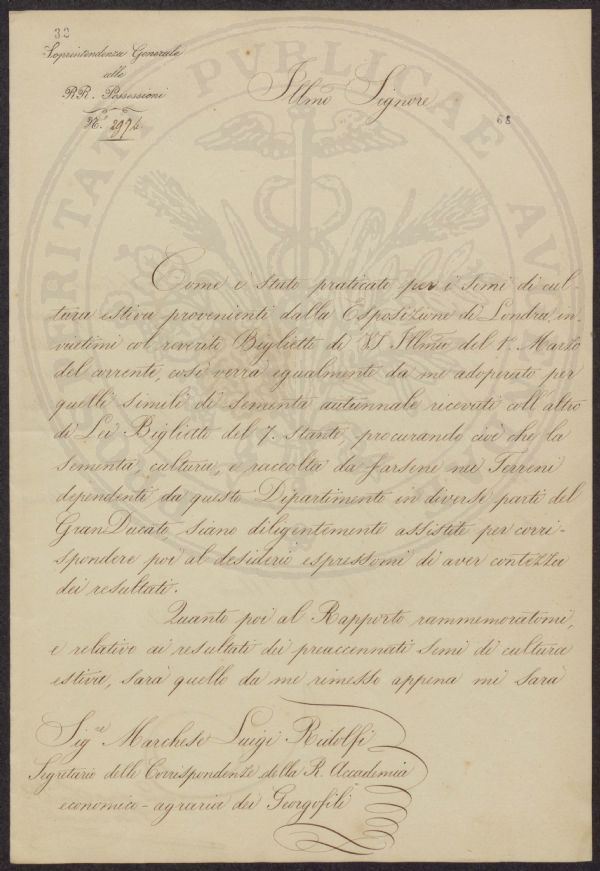 32
Soprintendenza Generale
alle
RR. Possessioni
N.° 2976.
Illmo Signore
68
Come è stato praticato per i semi di cul-
tura estiva provenienti dalla Esposizione di Londra, in-
viatimi col reverito Biglietto di VS Illma del 1°. Marzo
del corrente, così verrà egualmente da me adoperato per
quelli simili di sementa autunnale ricevuti coll'altro
di Lei Biglietto del 7. stante, procurando cioè che la
sementa, cultura, e raccolta da farsene nei Terreni
dependenti da questo Dipartimento in diverse parti del
GranDucato siano diligentemente assistite per corri-
spondere poi al desiderio espressomi di aver contezza
dei resultati.
Quanto poi al Rapporto rammemoratomi,
e relativo ai resultati dei preaccennati semi di cultura
estiva, sarà quello da me rimesso appena mi sarà
Sig.re Marchese Luigi Ridolfi
Segretario delle Corrispondenze della R. Accademia
economico-agraria dei Georgofili
PUBLICAE